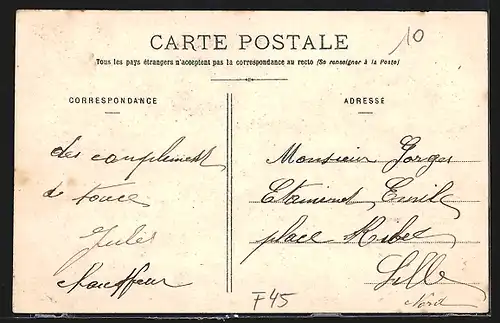 CARTE POSTALE
10
Tous les pays étrangers n'acceptent pas la correspondance au recto (Se renseigner à la Poste)
CORRESPONDANCE
des conplement
de
Jules
chauffeur
ADRESSE
Monsieur Gorges
Etaminet Emile
place
Lille
Nord
F45